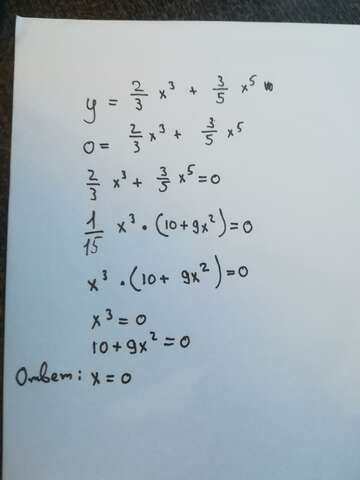 y = 2/3 x³ + 3/5 x⁵
0 = 2/3 x³ + 3/5 x⁵
2/3 x³ + 3/5 x⁵ = 0
1/15 x³ · (10 + 9x²) = 0
x³ · (10 + 9x²) = 0
x³ = 0
10 + 9x² = 0
Ответ: x = 0